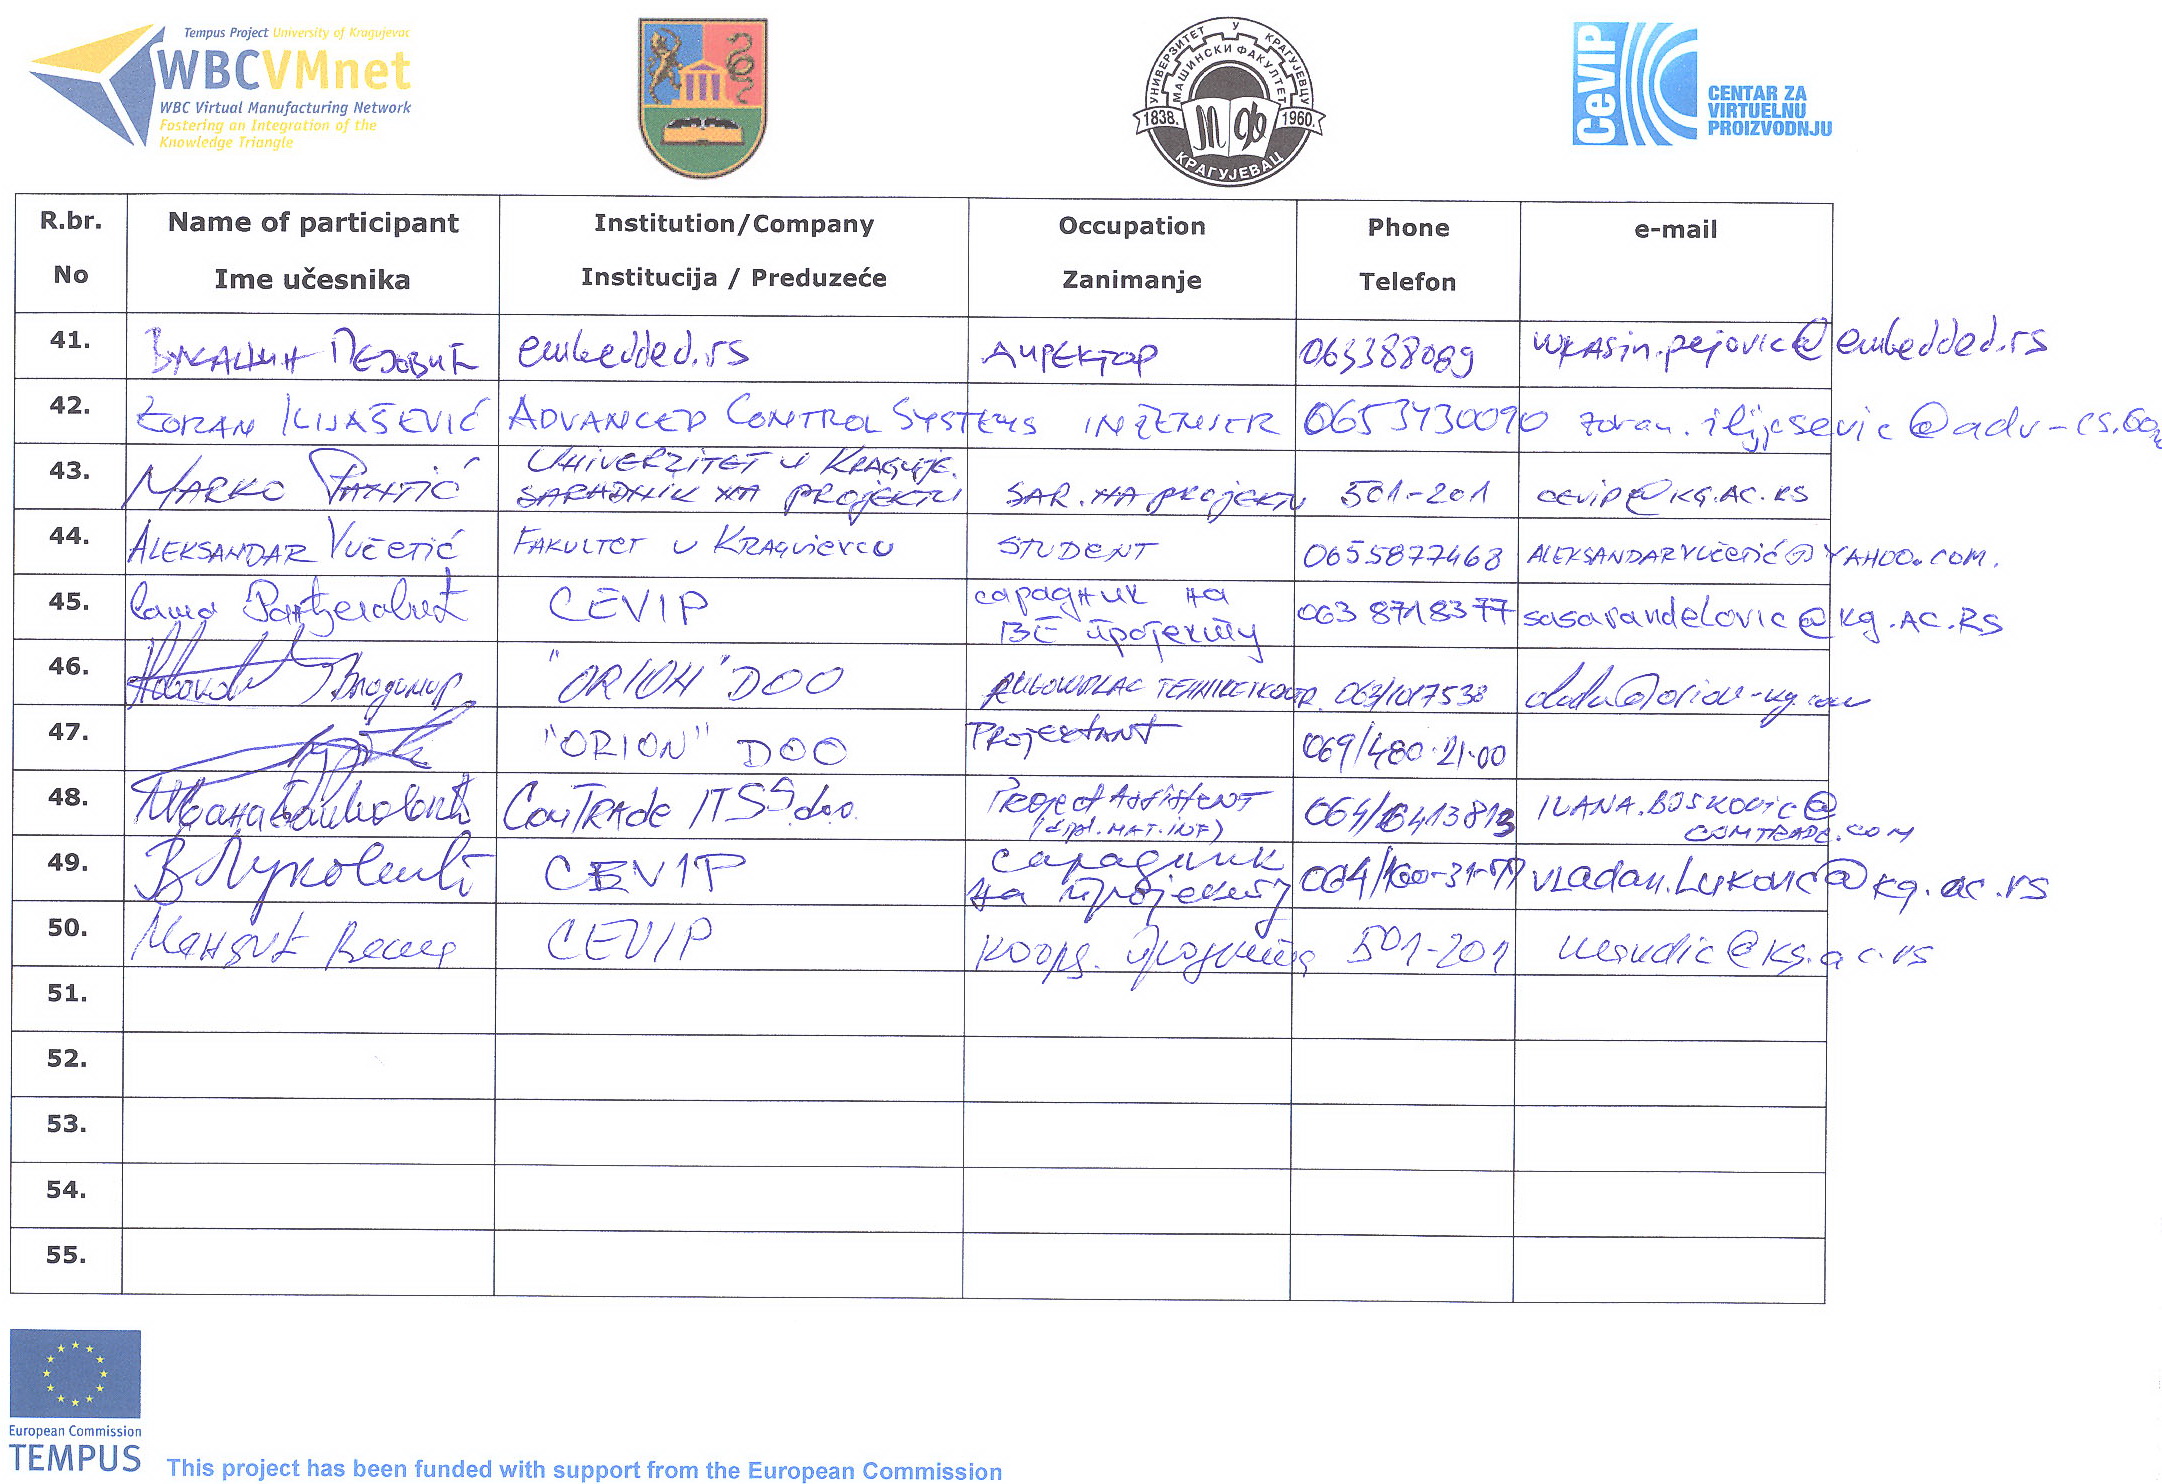 Tempus Project University of Kragujevac
WBCVMnet
WBC Virtual Manufacturing Network
Fostering an Integration of the
Knowledge Triangle
УНИВЕРЗИТЕТ У КРАГУЈЕВЦУ
МАШИНСКИ ФАКУЛТЕТ
1838. 1960.
КРАГУЈЕВАЦ
CeVIP
CENTAR ZA
VIRTUELNU
PROIZVODNJU
R.br. Name of participant Institution/Company Occupation Phone e-mail
No Ime učesnika Institucija / Preduzeće Zanimanje Telefon
41. Вукашин Пејовић embedded.rs Директор 063388089 vukasin.pejovic@embedded.rs
42. ZORAN ILIJAŠEVIĆ ADVANCED CONTROL SYSTEMS INŽENJER 0653730090
43. MARKO UNIVERZITET U KRAGUJE.
SARADNIK NA PROJEKTU SAR. NA PROJEKTU 501-201 CEVIP@KG.AC.RS
44. ALEKSANDAR VUČETIĆ FAKULTET U KRAGUJEVCU STUDENT 0655877468 ALEKSANDARVUČETIĆ@YAHOO.COM.
45. Саша Ранђеловић CEVIP сарадник на 063 8718377 sasarandelovic@kg.AC.RS
ВЕ пројекту
46. Владимир "ORION" DOO 063/1017538
47. "ORION" DOO PROJEKTANT 069/480-21-00
48. Ивана Бошковић ComTrade ITSS d.o.o. Project Assistent IVANA.BOSKOVIC@
(dipl.mat.inf) COMTRADE.COM
49. В Луковић CEVIP сарадник vladan.Lukovic@kg.ac.rs
на пројекту
50. Мандић Весна CEVIP коорд. пројекта 501-201 mandic@kg.ac.rs
51.
52.
53.
54.
55.
European Commission
TEMPUS
This project has been funded with support from the European Commission